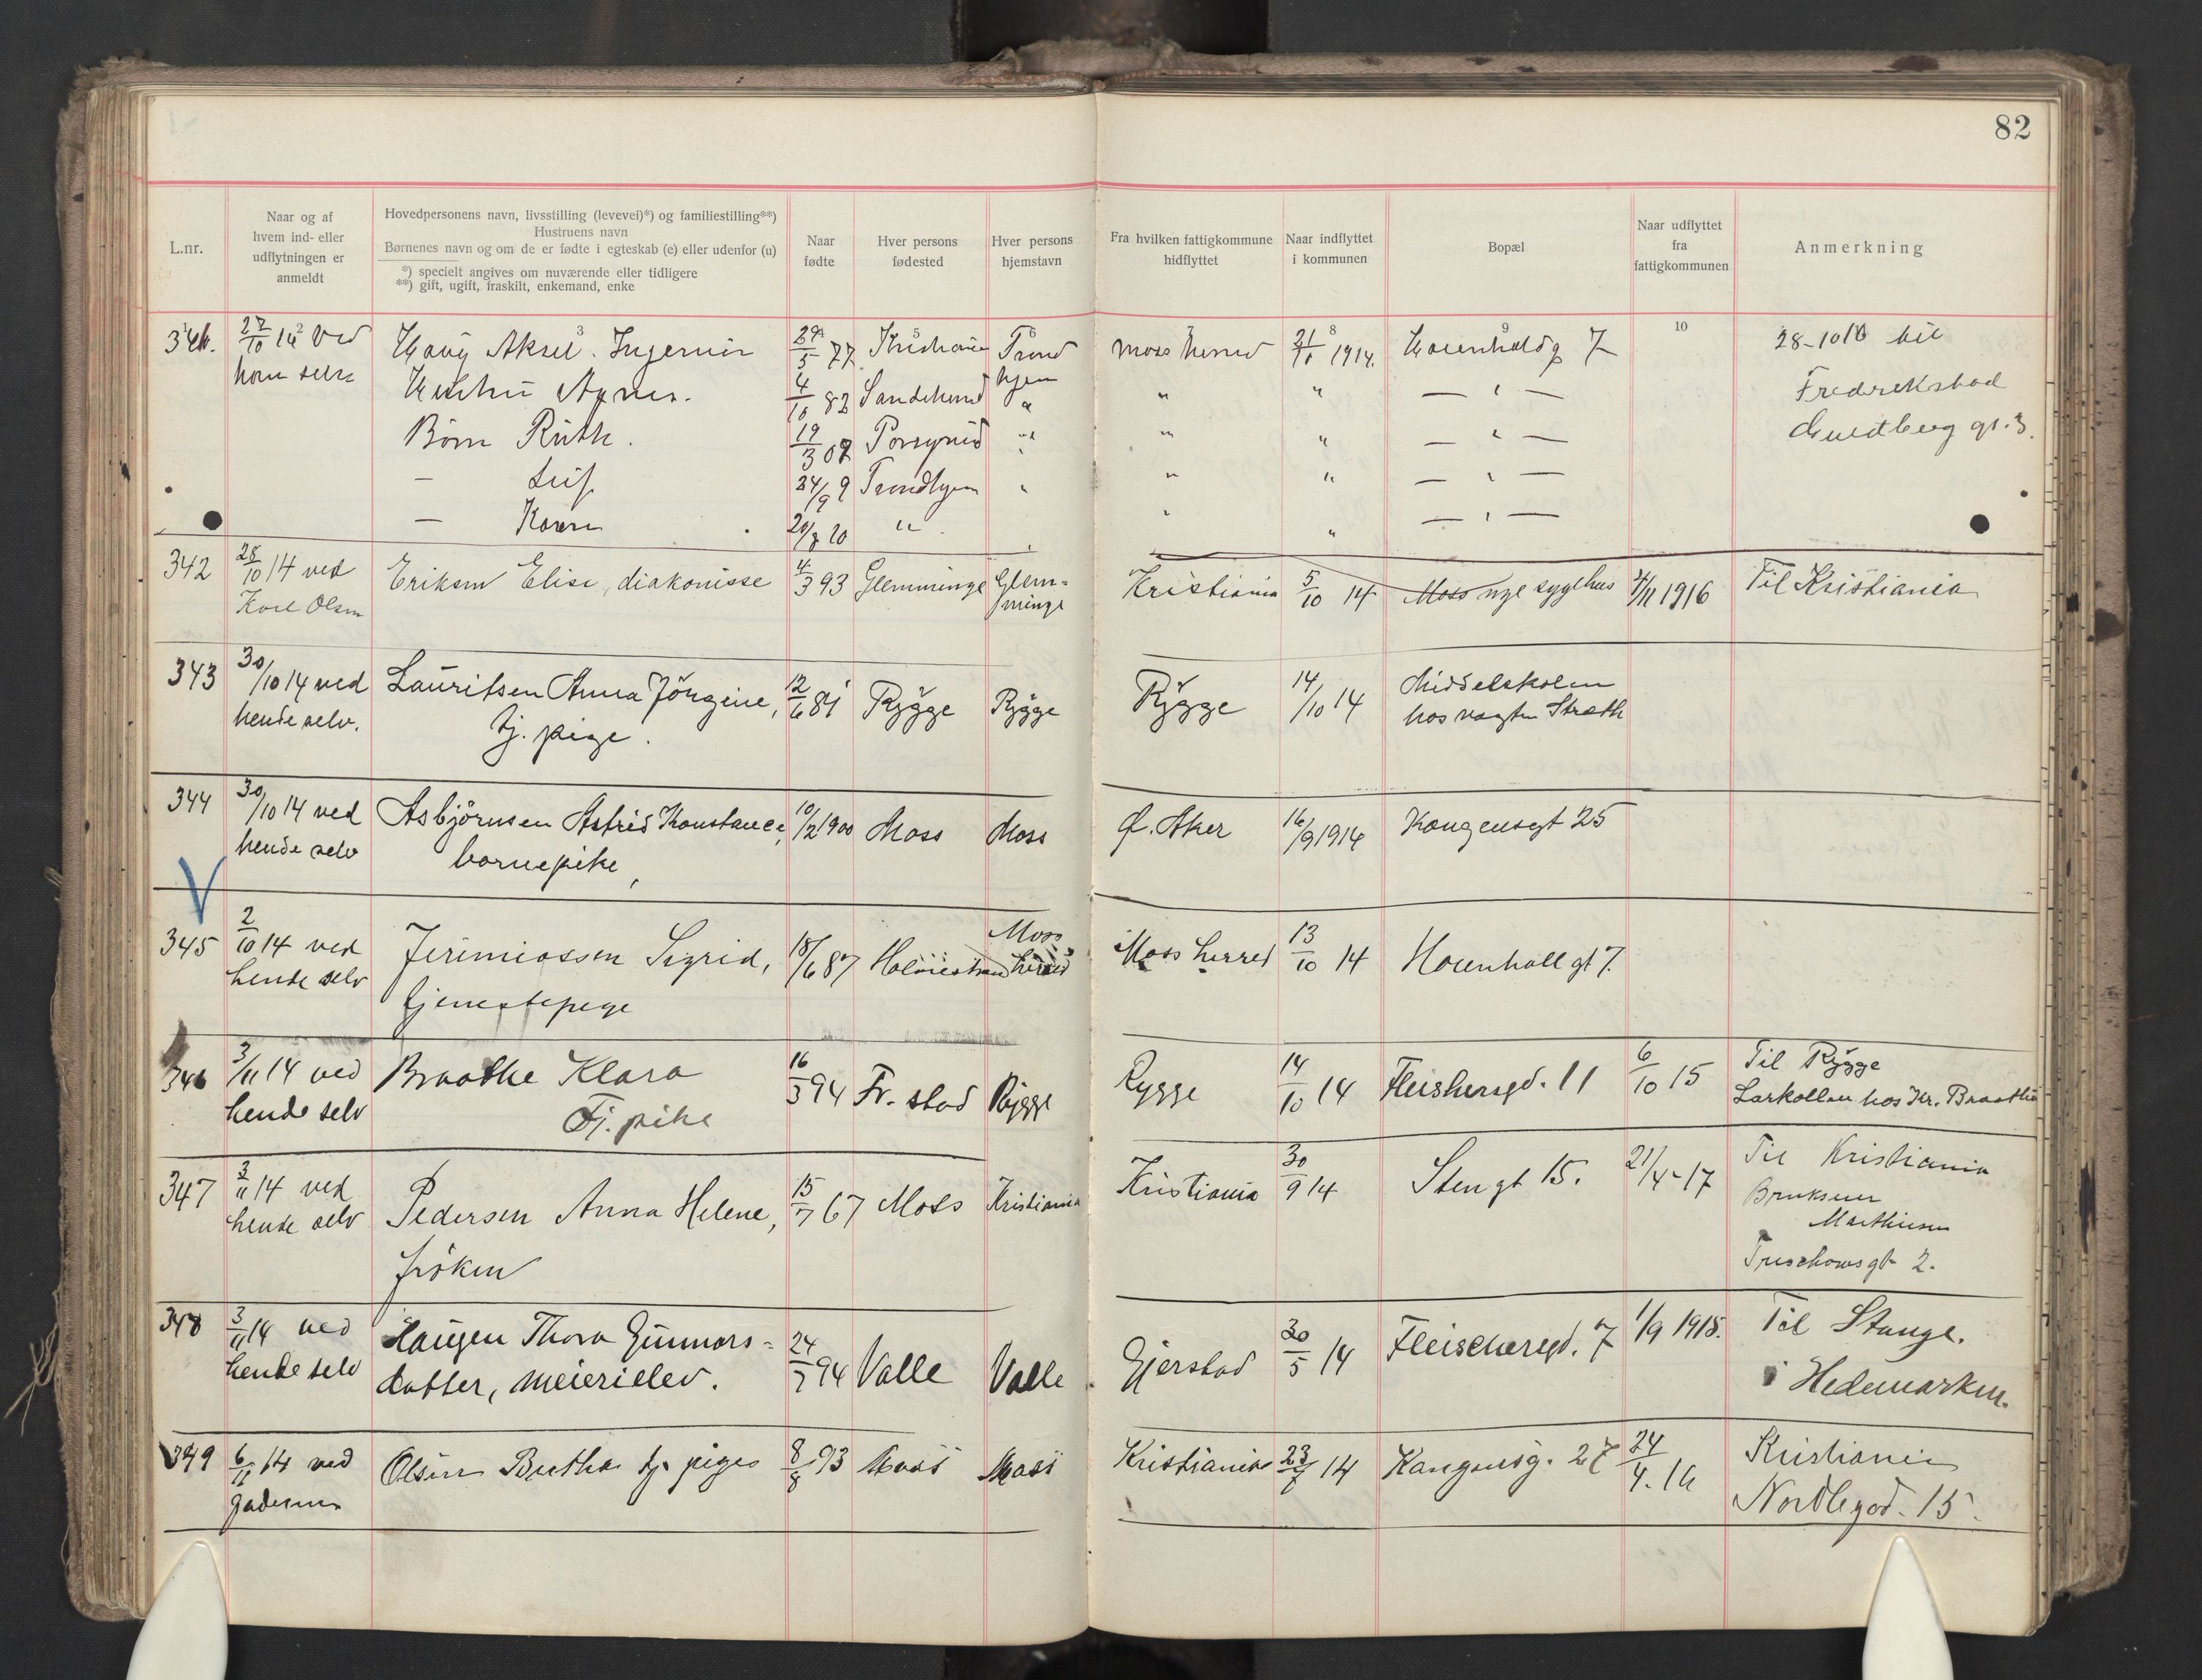 82
L.nr.
Naar og af
hvem ind- eller
udflytningen er
anmeldt
Hovedpersonens navn, livsstilling (levevei)*) og familiestilling**)
Hustruens navn
Børnenes navn og om de er fødte i egteskab (e) eller udenfor (u)
*) specielt angives om nuværende eller tidligere
**) gift, ugift, fraskilt, enkemand, enke
Naar
fødte
Hver persons
fødested
Hver persons
hjemstavn
Fra hvilken fattigkommune
hidflyttet
Naar indflyttet
i kommunen
Bopæl
Naar udflyttet
fra
fattigkommunen
Anmerkning
2 3 5 6 8 9 10
27/10 14 ved Haug Aksel. Ingeniør 29/5 77 Kristiania Trond Moss herred 21/10 1914. 7 28-10 16 til
ham selv Hustru Agnes. 4/10 82 Sandeherred hjem " " — " — Fredrikstad
Børn Ruth. 19/3 07 Porsgrund " " " — " — gt. 3.
— Leif 24/9 9 Trondhjem " " " — " —
— Karen 20 " " " — " —
342 28/10 14 ved Eriksen Elise, diakonisse 4/3 93 Glemminge Glem-
Karl Olsen minge Kristiania 5/10 14 Moss nye sygehus /11 1916 Til Kristiania
343 30/10 14 ved Lauritsen Anna Jörgine, 12/6 81 Rygge Rygge Rygge 14/10 14 Middelskolen
hende selv. tj. pige. hos vagtm Stræth
344 30/10 14 ved Asbjörnsen Astrid Konstance, 10/2 1900 Moss Moss Ø. Aker 16/9 1914 Kongensgt 25
hende selv barnepike,
345 2/10 14 ved Jerimiassen Sigrid, 18/6 87 Holmestrand Moss herred Moss herred 13/10 14 Houenhall gt 7.
hende selv tjenestepige
346 3/11 14 ved Braathe Klara 16/3 94 Fr. stad Rygge Rygge 14/10 14 Fleishersgd. 11 6/10 15 Til Rygge
hende selv Tj. pike Larkollen hos Kr. Braathe
347 3/11 14 ved Pedersen Anna Helene, 15/7 67 Moss Kristiania Kristiania 30/9 14 Stengt 15. 21/4-17 Til Kristiania
hende selv fröken
Mathiesen
Treschowsgt 2.
348 3/11 14 ved Haugen Thora Gunnars- 24/7 94 Valle Valle Gjerstad 30/5 14 Fleischersgd. 7 1/9 1915. Til Stange.
hende selv datter, meierielev. i Hedemarken.
349 6/11 14 ved Olsen Bertha tj. pige 8/8 93 Moss Moss Kristiania 23/7 14 Kongensg. 27 24/4.16 Kristiania
15.